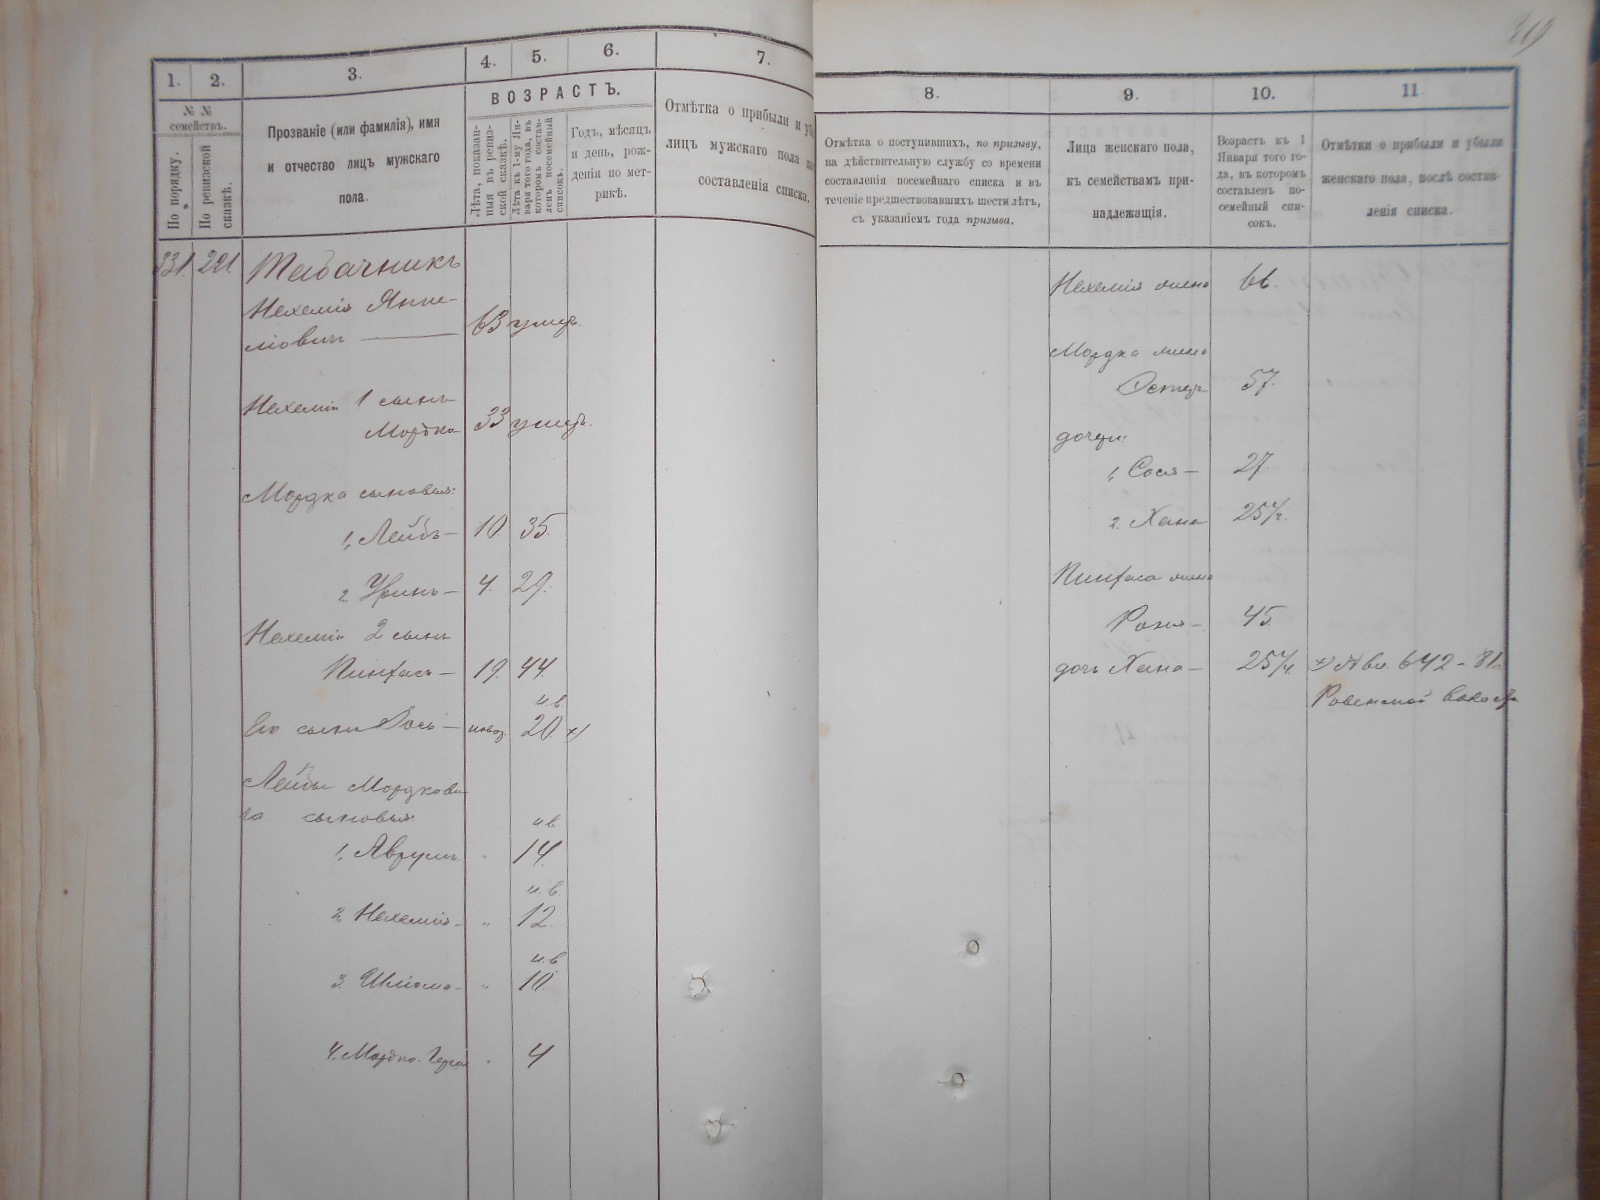 319
1.
2.
3.
4.
5.
6.
7.
№ №
семействъ.
По порядку.
По ревизской
сказкѣ.
Прозваніе (или фамилія), имя
и отчество лицъ мужскаго
пола.
ВОЗРАСТЪ.
Лѣта, показан-
ныя въ ревиз-
ской сказкѣ.
Лѣта къ 1-му Ян-
варя того года, въ
которомъ состав-
ленъ посемейный
списокъ.
Годъ, мѣсяцъ
и день, рож-
денія по мет-
рикѣ.
Отмѣтка о прибыли и
лицъ мужскаго пола
составленія списка.
331. 291. Табачникъ
Нехемія
63 умер.
Нехемія 1 сынъ
Мордко 33 умеръ.
Мордка сыновья:
1, Лейбъ — 10. 35.
2 — 4. 29.
Нехемія 2 сынъ
Пинхасъ — 19. 44.
и.в.
Его сынъ Іось — новор. 20. х)
Лейбы Мордкови-
ча сыновья:
и.в.
1, Аврумъ " 14.
и.в.
2, Нехемія — " 12.
и.в.
3. Шліома — " 10.
4. Мордко " 4
8.
9.
10.
11
Отмѣтка о поступившихъ, по призыву,
на дѣйствительную службу со времени
составленія посемейнаго списка и въ
теченіе предшествовавшихъ шести лѣтъ,
съ указаніемъ года призыва.
Лица женскаго пола,
къ семействамъ при-
надлежащія.
Возрастъ къ 1
Января того го-
да, въ которомъ
составленъ по-
семейный спи-
сокъ.
Отмѣтки о прибыли и убыли
женскаго пола, послѣ состав-
ленія списка.
Нехемія жена 66.
Мордка жена
Эстеръ 57.
дочери:
1, Сося — 27.
2. Хана 25½.
Пинхаса жена
45.
дочь Хана — 25 х) вх. 642 - 81
Ровенской